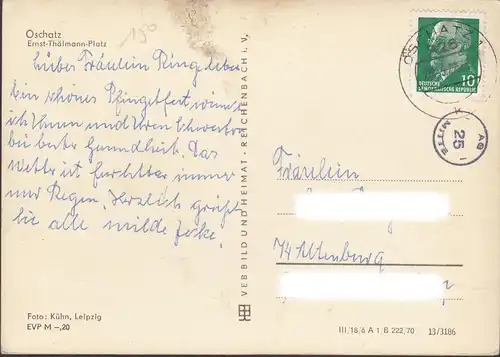 Oschatz
Ernst-Thälmann-Platz
190
Liebes Fräulein Ringeleben
Ein schönes Pfingstfest wünscht
ich Ihnen und Ihren Schwestern
bei bester Gesundheit. Das
Wetter ist furchtbar immer
nur Regen. Herzlich grüßt
Sie alle milde
Foto: Kühn, Leipzig
EVP M -,20
VEB BILD UND HEIMAT · REICHENBACH i. V.
OSCHATZ 1
DEUTSCHE
DEMOKRATISCHE REPUBLIK
10
AG
25
MITTE
Fräulein
74 Altenburg
III/18/6 A 1 B 222/70 13/3186